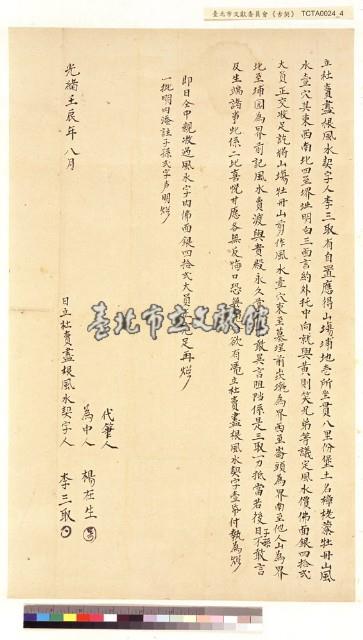 臺北市文獻委員會《古契》 TCTA0024_4
立杜賣盡根風水契字人李三取有自置應得山場埔地壱所坐貫八里份堡土名樟栳藔牡丹山風
水壹穴其東西南北四至界址明白三面言約外托中向就與黃則笑兄弟等議定風水價佛面銀四拾弍
大員正交收足訖將山場牡丹山剪作風水壹穴東至墓埕前崁墘為界西至崙頭為界南至他人山為界
北至埔園為界前記風水賣渡與買
敢異言阻擋係是三取一力抵當若後日子孫不敢言
及生端諸事此係二比喜悅甘愿各無反悔口恐
欲有憑立杜賣盡根風水契字壹紙付執為炤
即日仝中親收過風水字內佛面銀四拾弍大員
足再炤
一批明內添註子孫弍字声明炤
代筆人
為中人 楊在生
光緒壬辰年八月 日立杜賣盡根風水契字人 李三取
臺北市立文獻館